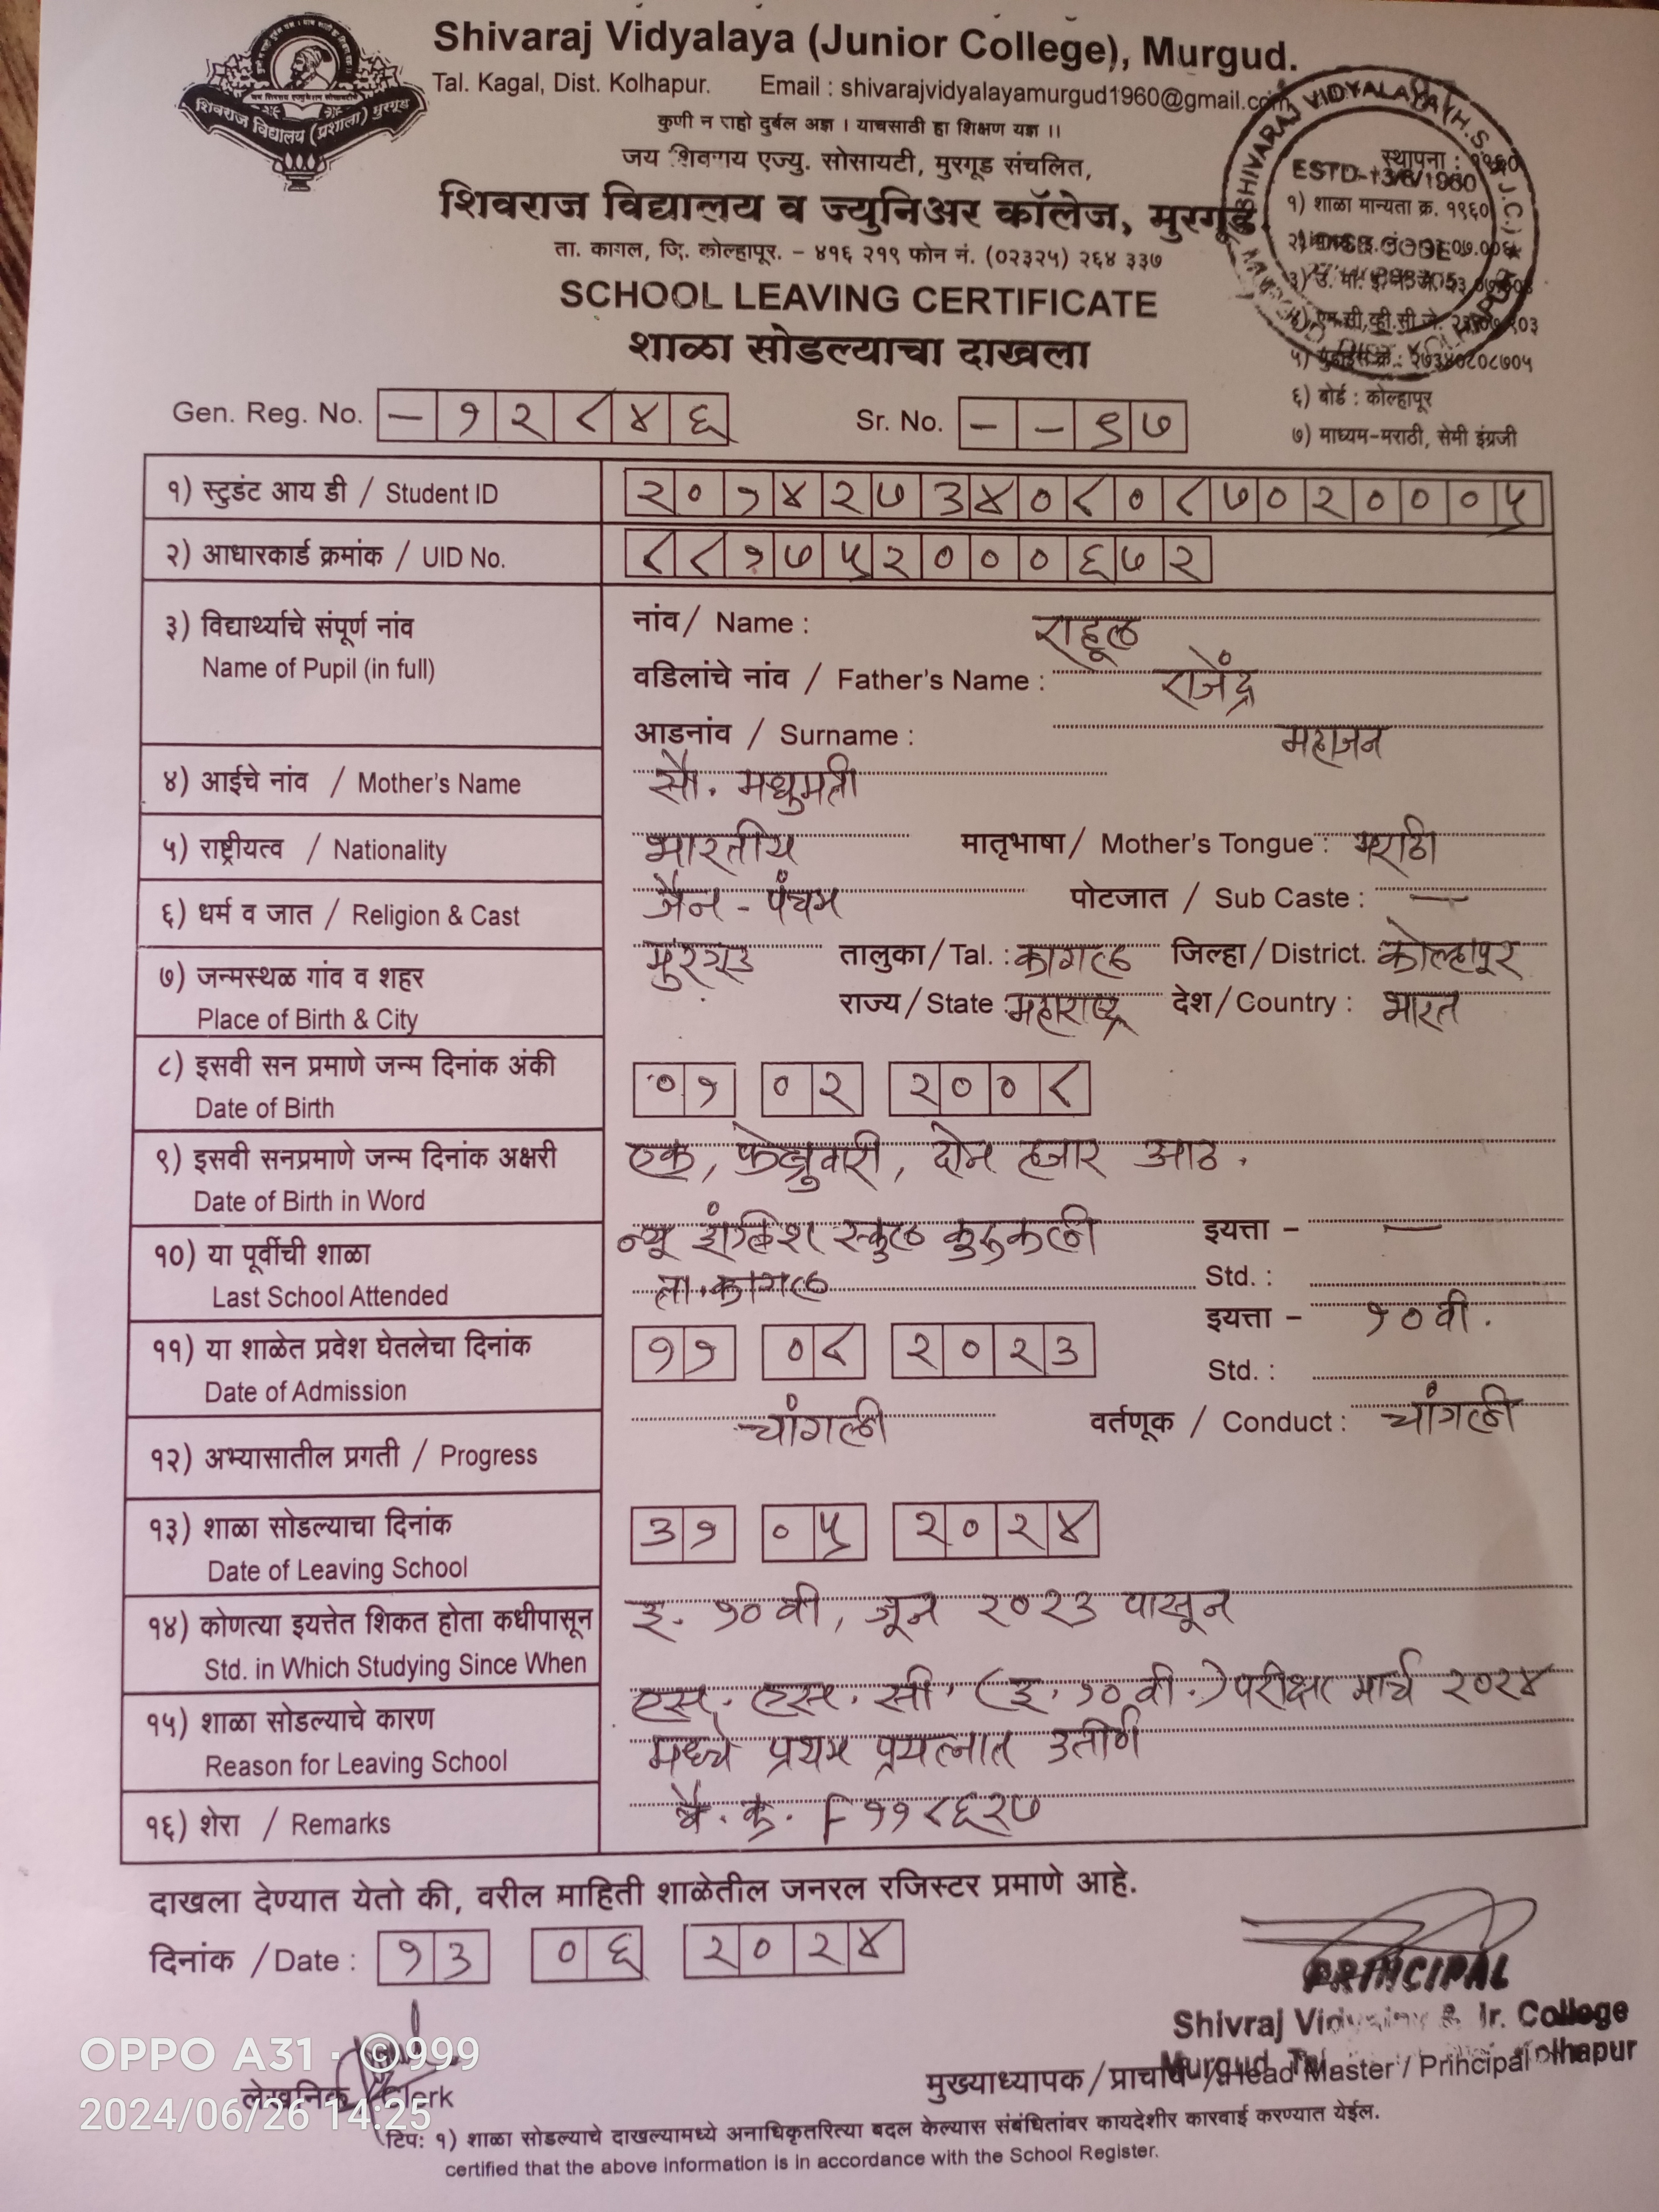 Shivaraj Vidyalaya (Junior College), Murgud.
Tal. Kagal, Dist. Kolhapur. Email : shivarajvidyalayamurgud1960@gmail.com
कुणी न राहो दुर्बल अज्ञ । याचसाठी हा शिक्षण यज्ञ ।।
जय शिवराय एज्यु. सोसायटी, मुरगूड संचलित,
शिवराज विद्यालय व ज्युनिअर कॉलेज, मुरगूड.
ता. कागल, जि. कोल्हापूर. – ४१६ २१९ फोन नं. (०२३२५) २६४ ३३७
SCHOOL LEAVING CERTIFICATE
शाळा सोडल्याचा दाखला
शिवराज विद्यालय (प्रशाला) मुरगूड
SHIVARAJ VIDYALAYA (H.S. & J.C.)
ESTD-13/6/1960
स्थापना : १९६०
१) शाळा मान्यता क्र. १९६०
६) बोर्ड : कोल्हापूर
७) माध्यम-मराठी, सेमी इंग्रजी
Gen. Reg. No. – १२८४६ Sr. No. – – ९७
१) स्टुडंट आय डी / Student ID २०१४२७३४०८०८७०२०००५
२) आधारकार्ड क्रमांक / UID No. ८८१७५२०००६७२
३) विद्यार्थ्याचे संपूर्ण नांव नांव / Name : राहूल
Name of Pupil (in full) वडिलांचे नांव / Father's Name : राजेंद्र
आडनांव / Surname : महाजन
४) आईचे नांव / Mother's Name सौ. मधुमती
५) राष्ट्रीयत्व / Nationality भारतीय मातृभाषा / Mother's Tongue : मराठी
६) धर्म व जात / Religion & Cast जैन - पंचम पोटजात / Sub Caste : —
७) जन्मस्थळ गांव व शहर मुरगूड तालुका / Tal. : कागल जिल्हा / District. कोल्हापूर
Place of Birth & City राज्य / State : महाराष्ट्र देश / Country : भारत
८) इसवी सन प्रमाणे जन्म दिनांक अंकी ०१ ०२ २००८
Date of Birth
९) इसवी सनप्रमाणे जन्म दिनांक अक्षरी एक, फेब्रुवारी, दोन हजार आठ.
Date of Birth in Word
१०) या पूर्वीची शाळा न्यू इंग्लिश स्कुल कुरुकली इयत्ता – —
Last School Attended ता. कागल Std. :
११) या शाळेत प्रवेश घेतलेचा दिनांक ११ ०८ २०२३ इयत्ता – १० वी.
Date of Admission Std. :
१२) अभ्यासातील प्रगती / Progress चांगली वर्तणूक / Conduct : चांगली
१३) शाळा सोडल्याचा दिनांक ३१ ०५ २०२४
Date of Leaving School
१४) कोणत्या इयत्तेत शिकत होता कधीपासून इ. १० वी, जून २०२३ पासून
Std. in Which Studying Since When
१५) शाळा सोडल्याचे कारण एस. एस. सी. (इ. १० वी.) परीक्षा मार्च २०२४
Reason for Leaving School मध्ये प्रथम प्रयत्नात उत्तीर्ण
१६) शेरा / Remarks बै. क्र. F ११८६२७
दाखला देण्यात येतो की, वरील माहिती शाळेतील जनरल रजिस्टर प्रमाणे आहे.
दिनांक / Date : १३ ०६ २०२४
PRINCIPAL
Shivraj Vidyalaya & Jr. College
Murgud, Tal. Kolhapur
लेखनिक / Clerk मुख्याध्यापक / प्राचार्य / Head Master / Principal
टिप: १) शाळा सोडल्याचे दाखल्यामध्ये अनाधिकृतरित्या बदल केल्यास संबंधितांवर कायदेशीर कारवाई करण्यात येईल.
certified that the above information is in accordance with the School Register.
OPPO A31 · ©999
2024/06/26 14:25